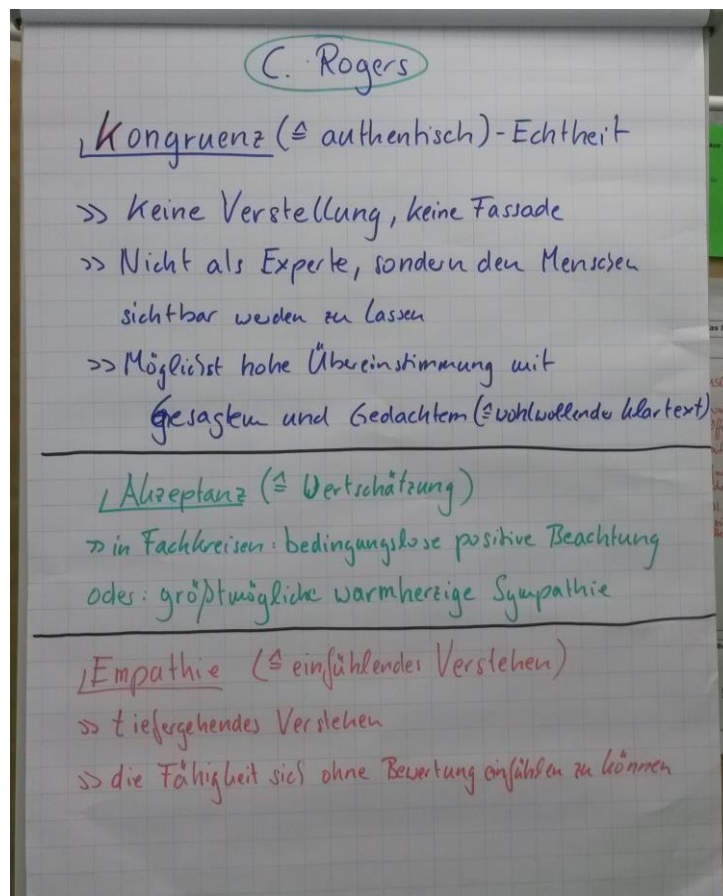 C. Rogers
Kongruenz (≙ authentisch) - Echtheit
>> Keine Verstellung, keine Fassade
>> Nicht als Experte, sondern den Menschen
sichtbar werden zu lassen
>> Möglichst hohe Übereinstimmung mit
Gesagtem und Gedachtem (≙ wohlwollender Klartext)
Akzeptanz (≙ Wertschätzung)
>> in Fachkreisen: bedingungslose positive Beachtung
oder: größtmögliche warmherzige Sympathie
Empathie (≙ einfühlendes Verstehen)
>> tiefergehendes Verstehen
>> die Fähigkeit sich ohne Bewertung einfühlen zu können